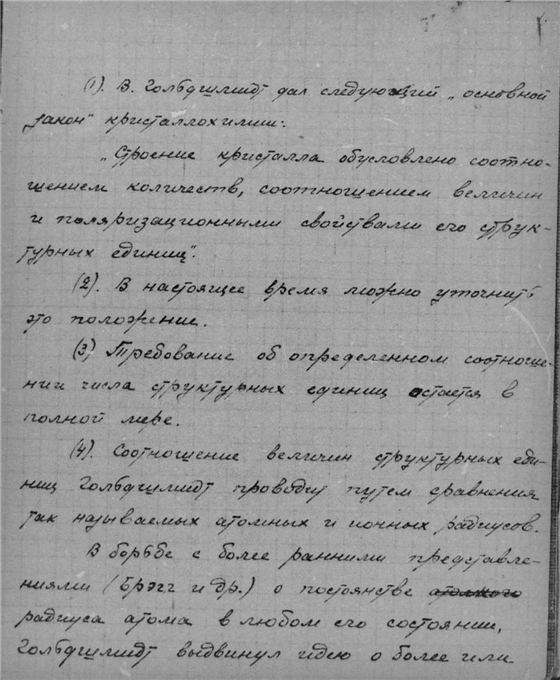 (1). В. Гольдшмидт дал следующий „основной
закон" кристаллохимии:
„Строение кристалла обусловлено соотно-
шением количеств, соотношением величин
и поляризационными свойствами его струк-
турных единиц".
(2). В настоящее время можно уточнить
это положение.
(3) Требование об определенном соотноше-
нии числа структурных единиц остается в
полной мере.
(4). Соотношение величин структурных еди-
ниц Гольдшмидт проводит путем сравнения
так называемых атомных и ионных радиусов.
В борьбе с более ранними представле-
ниями (Брэгг и др.) о постоянстве
радиуса атома в любом его состоянии,
Гольдшмидт выдвинул идею о более или